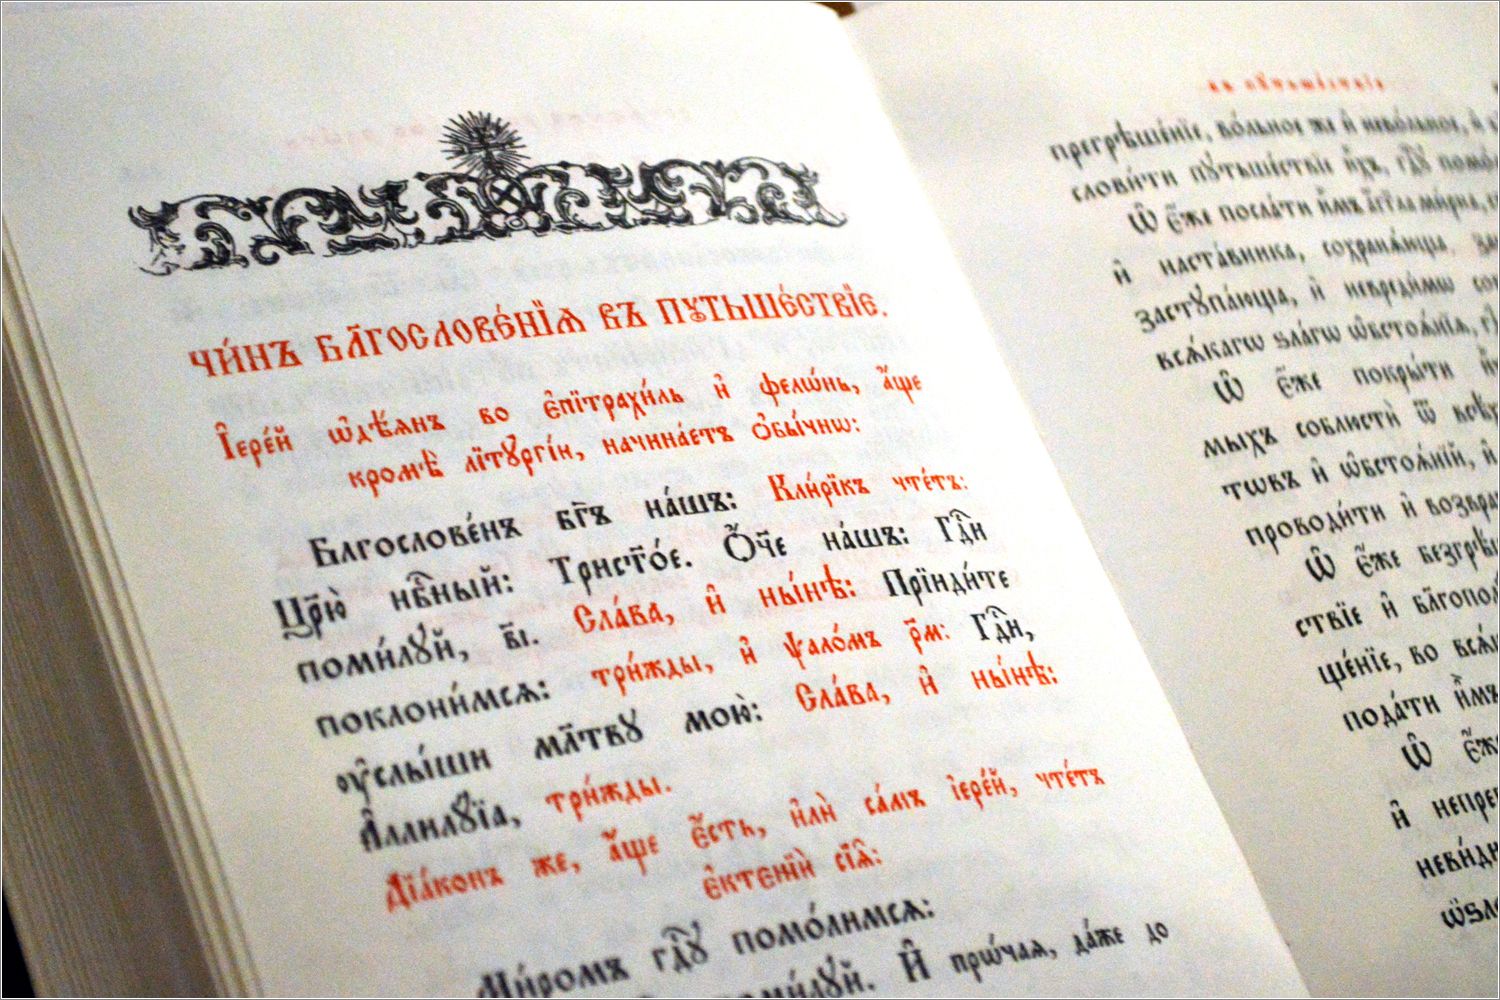 ЧИ́НЪ БЛ҃ГОСЛОВЕ́НЇѦ ВЪ ПꙊТЬШЕ́СТВЇЕ.
І҆ере́й ѡ҆дѣ́ѧнъ во є҆пїтрахи́ль и҆ фелѡ́нь, а҆́ще
кромѣ̀ лїтꙋргі́и, начина́етъ ѻ҆бы́чнѡ:
Бл҃гослове́нъ бг҃ъ на́шъ: Кли́рїкъ чте́тъ:
Цр҃ю̀ нбⷭ҇ный: Трист҃о́е. Ѻ҆́ч҃е на́шъ: Гдⷭ҇и
поми́лꙋй, в҃і. Сла́ва, и҆ ны́нѣ: Прїиди́те
поклони́мсѧ: три́жды, и҆ ѱало́мъ рм҃: Гдⷭ҇и,
ᲂу҆слы́ши мл҃твꙋ мою̀: Сла́ва, и҆ ны́нѣ:
А҆ллилꙋ́їа, три́жды.
Дїа́конъ же, а҆́ще є҆́сть, и҆лѝ са́мъ і҆ере́й, чте́тъ
є҆ктенїѝ сїѧ̑:
Ми́ромъ гдⷭ҇ꙋ помо́лимсѧ:
И҆ прѡ́чаѧ, да́же до
въ пꙋтьше́ствїе
прегрѣше́нїе, во́льное же и҆ нево́льное, и҆
слови́ти пꙋтьше́ствїе и҆́хъ, гдⷭ҇ꙋ
Ѽ є҆́же посла́ти и҆̀мъ а҆́гг҃ла ми́рна,
и҆ наста́вника, сохранѧ́юща,
застꙋпа́юща, и҆ невреди́мы
всѧ́кагѡ ѕла́гѡ ѡ҆бстоѧ́нїѧ,
Ѽ є҆́же покры́ти
мыхъ соблюстѝ ѿ
тѡвъ и҆ ѡ҆бстоѧ́нїй, и҆
проводи́ти и҆
Ѽ є҆́же
ствїе и҆
ще́нїе, во
пода́ти и҆̀мъ
Ѽ
и҆